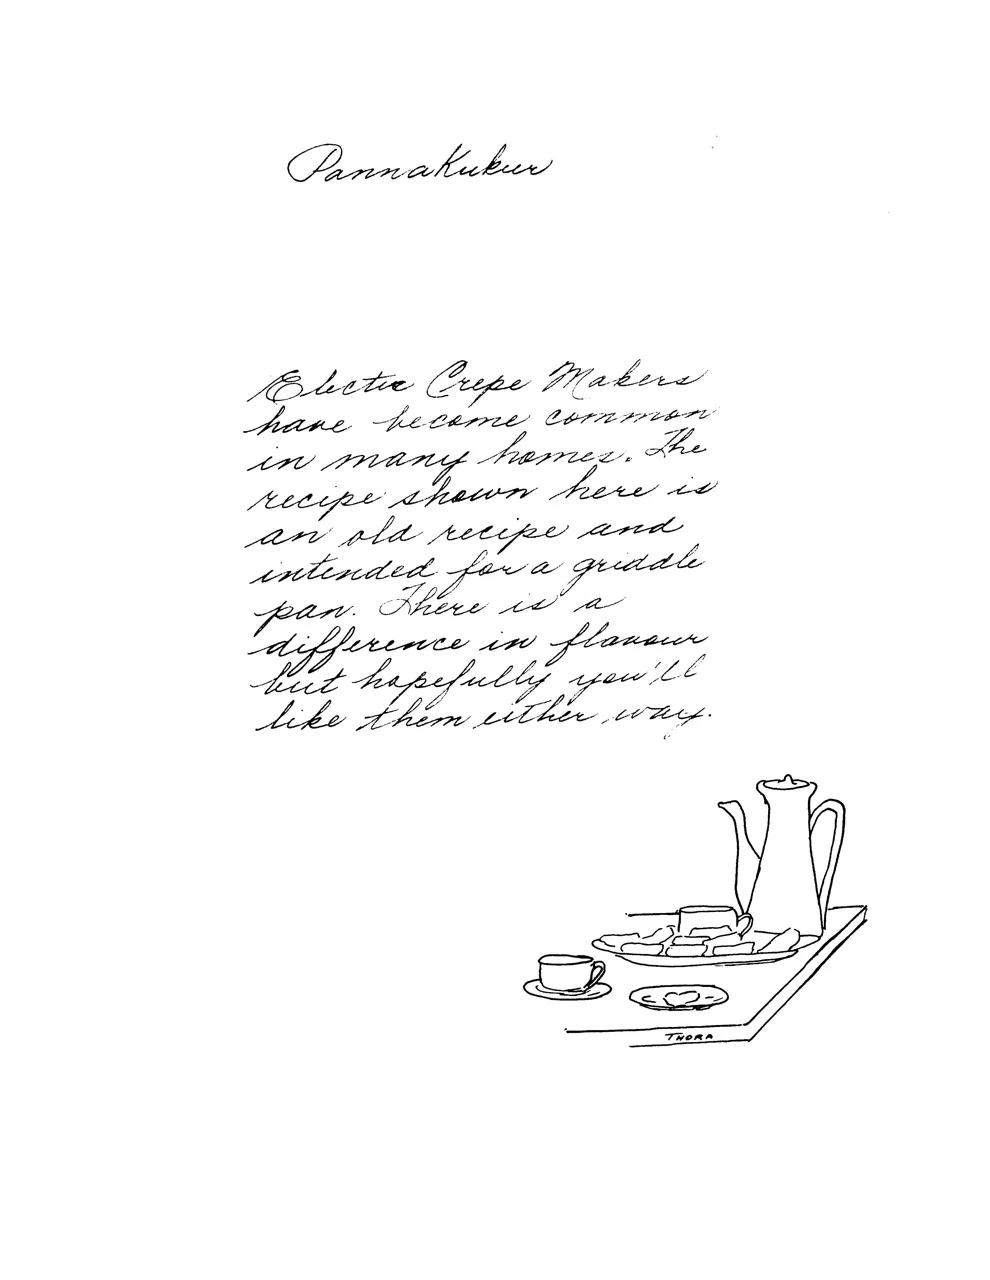 PannaKukur
Electic Crepe Makers
have become common
in many homes. The
recipe shown here is
an old recipe and
intended for a griddle
pan. There is a
difference in flavour
but hopefully you'll
like them either way.
THORA